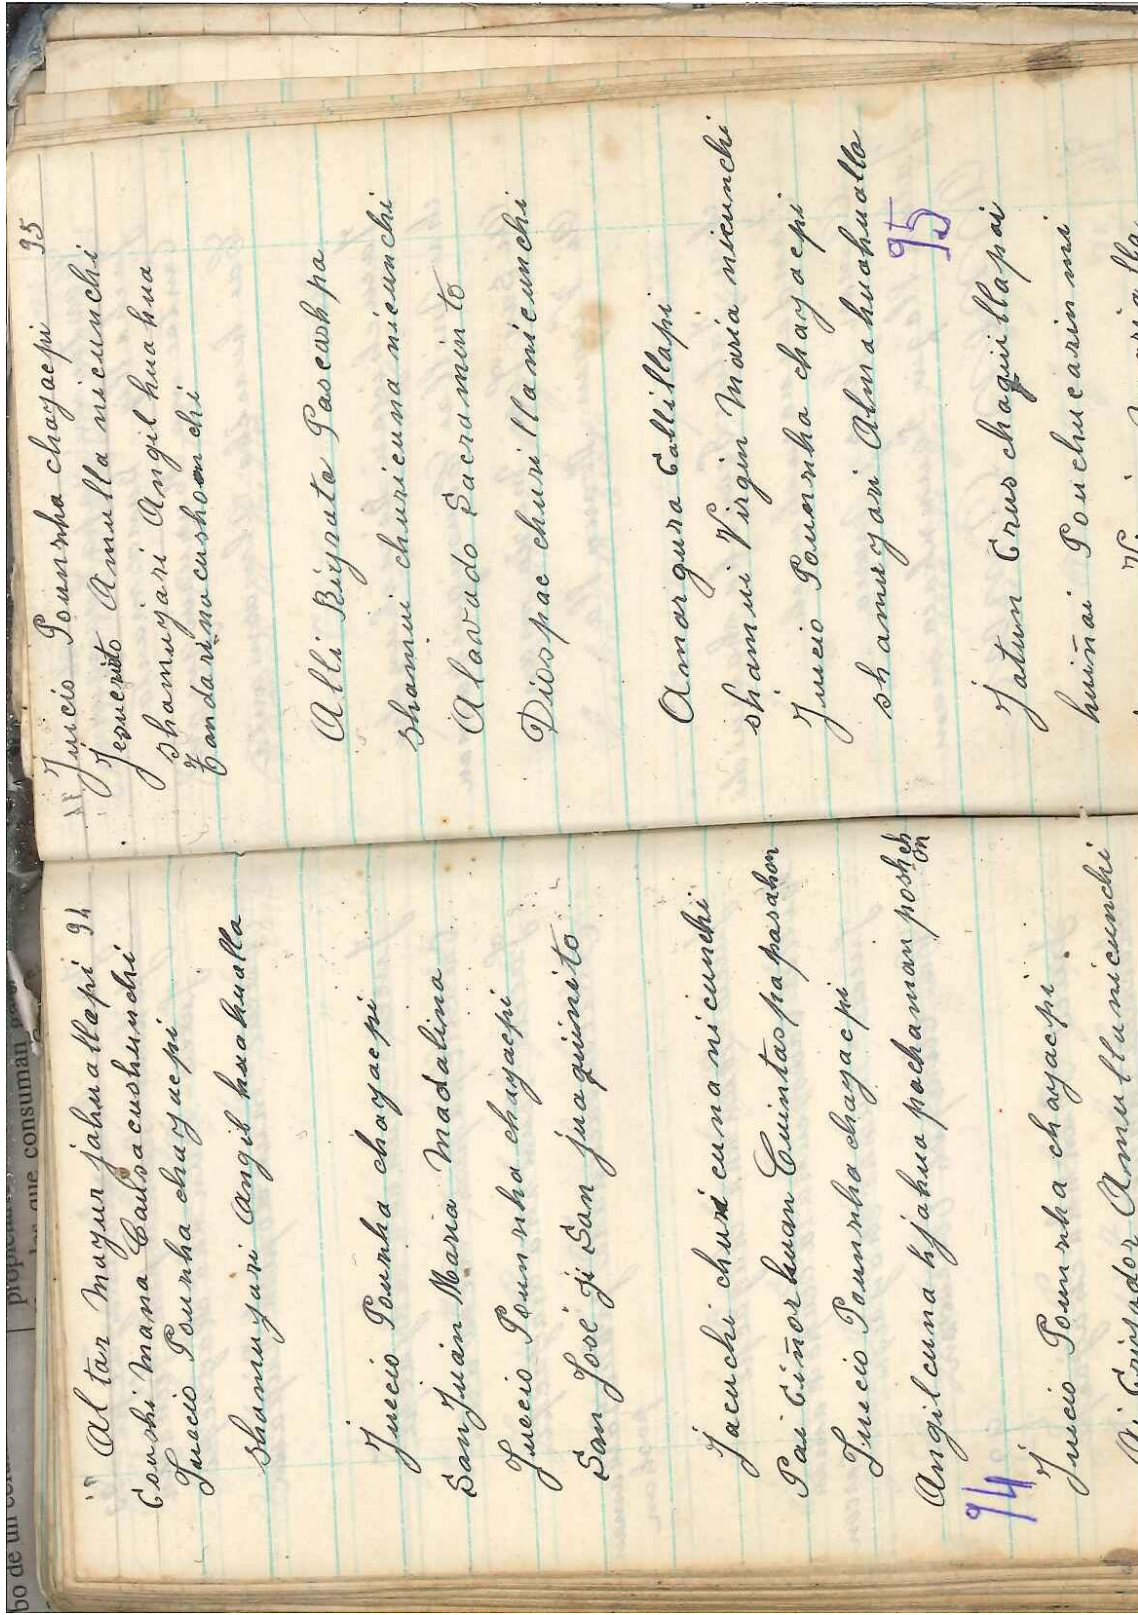 Altar mayur jahuallapi 94
Conshi mana Causacushunchi
Juacio Pounha chayacpi
shamuyari Angil huahualla
Juecio Pounha chayacpi
San Juan Maria Madalina
Juecio Pounha chayacpi
San José ji San juaquinito
Jacuchi churi cuna nicunchi
Pai Ciñor huan Cuintaspa pasahon
Juecio Pounha chayacpi
Angilcuna hjahua pachaman poshch
on
94
Juicio Pounha chayacpi
Criador Amullanicunchi
Juicio Pounha chayacpi 95
Jesucrito Amulla nicunchi
shamuyari Angil hua hua
Tandarinocushoonchi
Alli Biyruta Pascashpa
shamui churicuna nicunchi
Alavado Sacraminto
Diospac churillanicunchi
Amargura Callillapi
shamui Virgin Maria nicunchi
Juicio Pounha chayacpi
shamuryari Almahuahualla
95
Jatun Crus chaquillapai
huiñai Pouchucarinmi